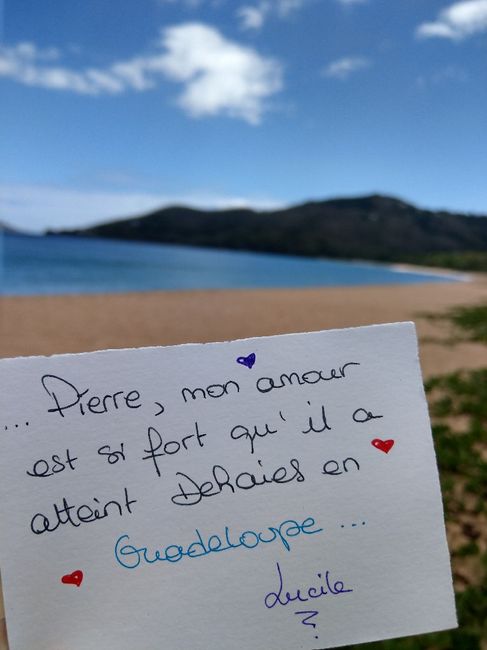 ... Pierre, mon amour
est si fort qu'il a
atteint DeHaies en
Guadeloupe ...
Lucile